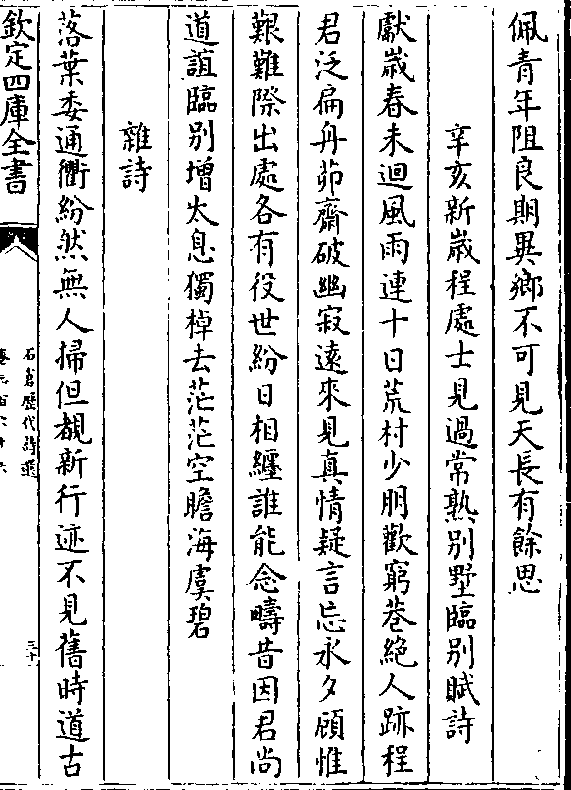 佩青年阻良期異鄉不可見天長有餘思
辛亥新歲程處士見過常熟別墅臨別賦詩
獻歲春未迴風雨連十日荒村少朋歡窮巷絕人跡程
君泛扁舟茆齋破幽寂遠來見真情疑言忘永夕顧惟
艱難際出處各有役世紛日相纏誰能念疇昔因君尚
道誼臨別增太息獨棹去茫茫空瞻海虞碧
雜詩
落葉委通衢紛然無人掃但覩新行迹不見舊時道古
欽定四庫全書
石倉歷代詩選
三十